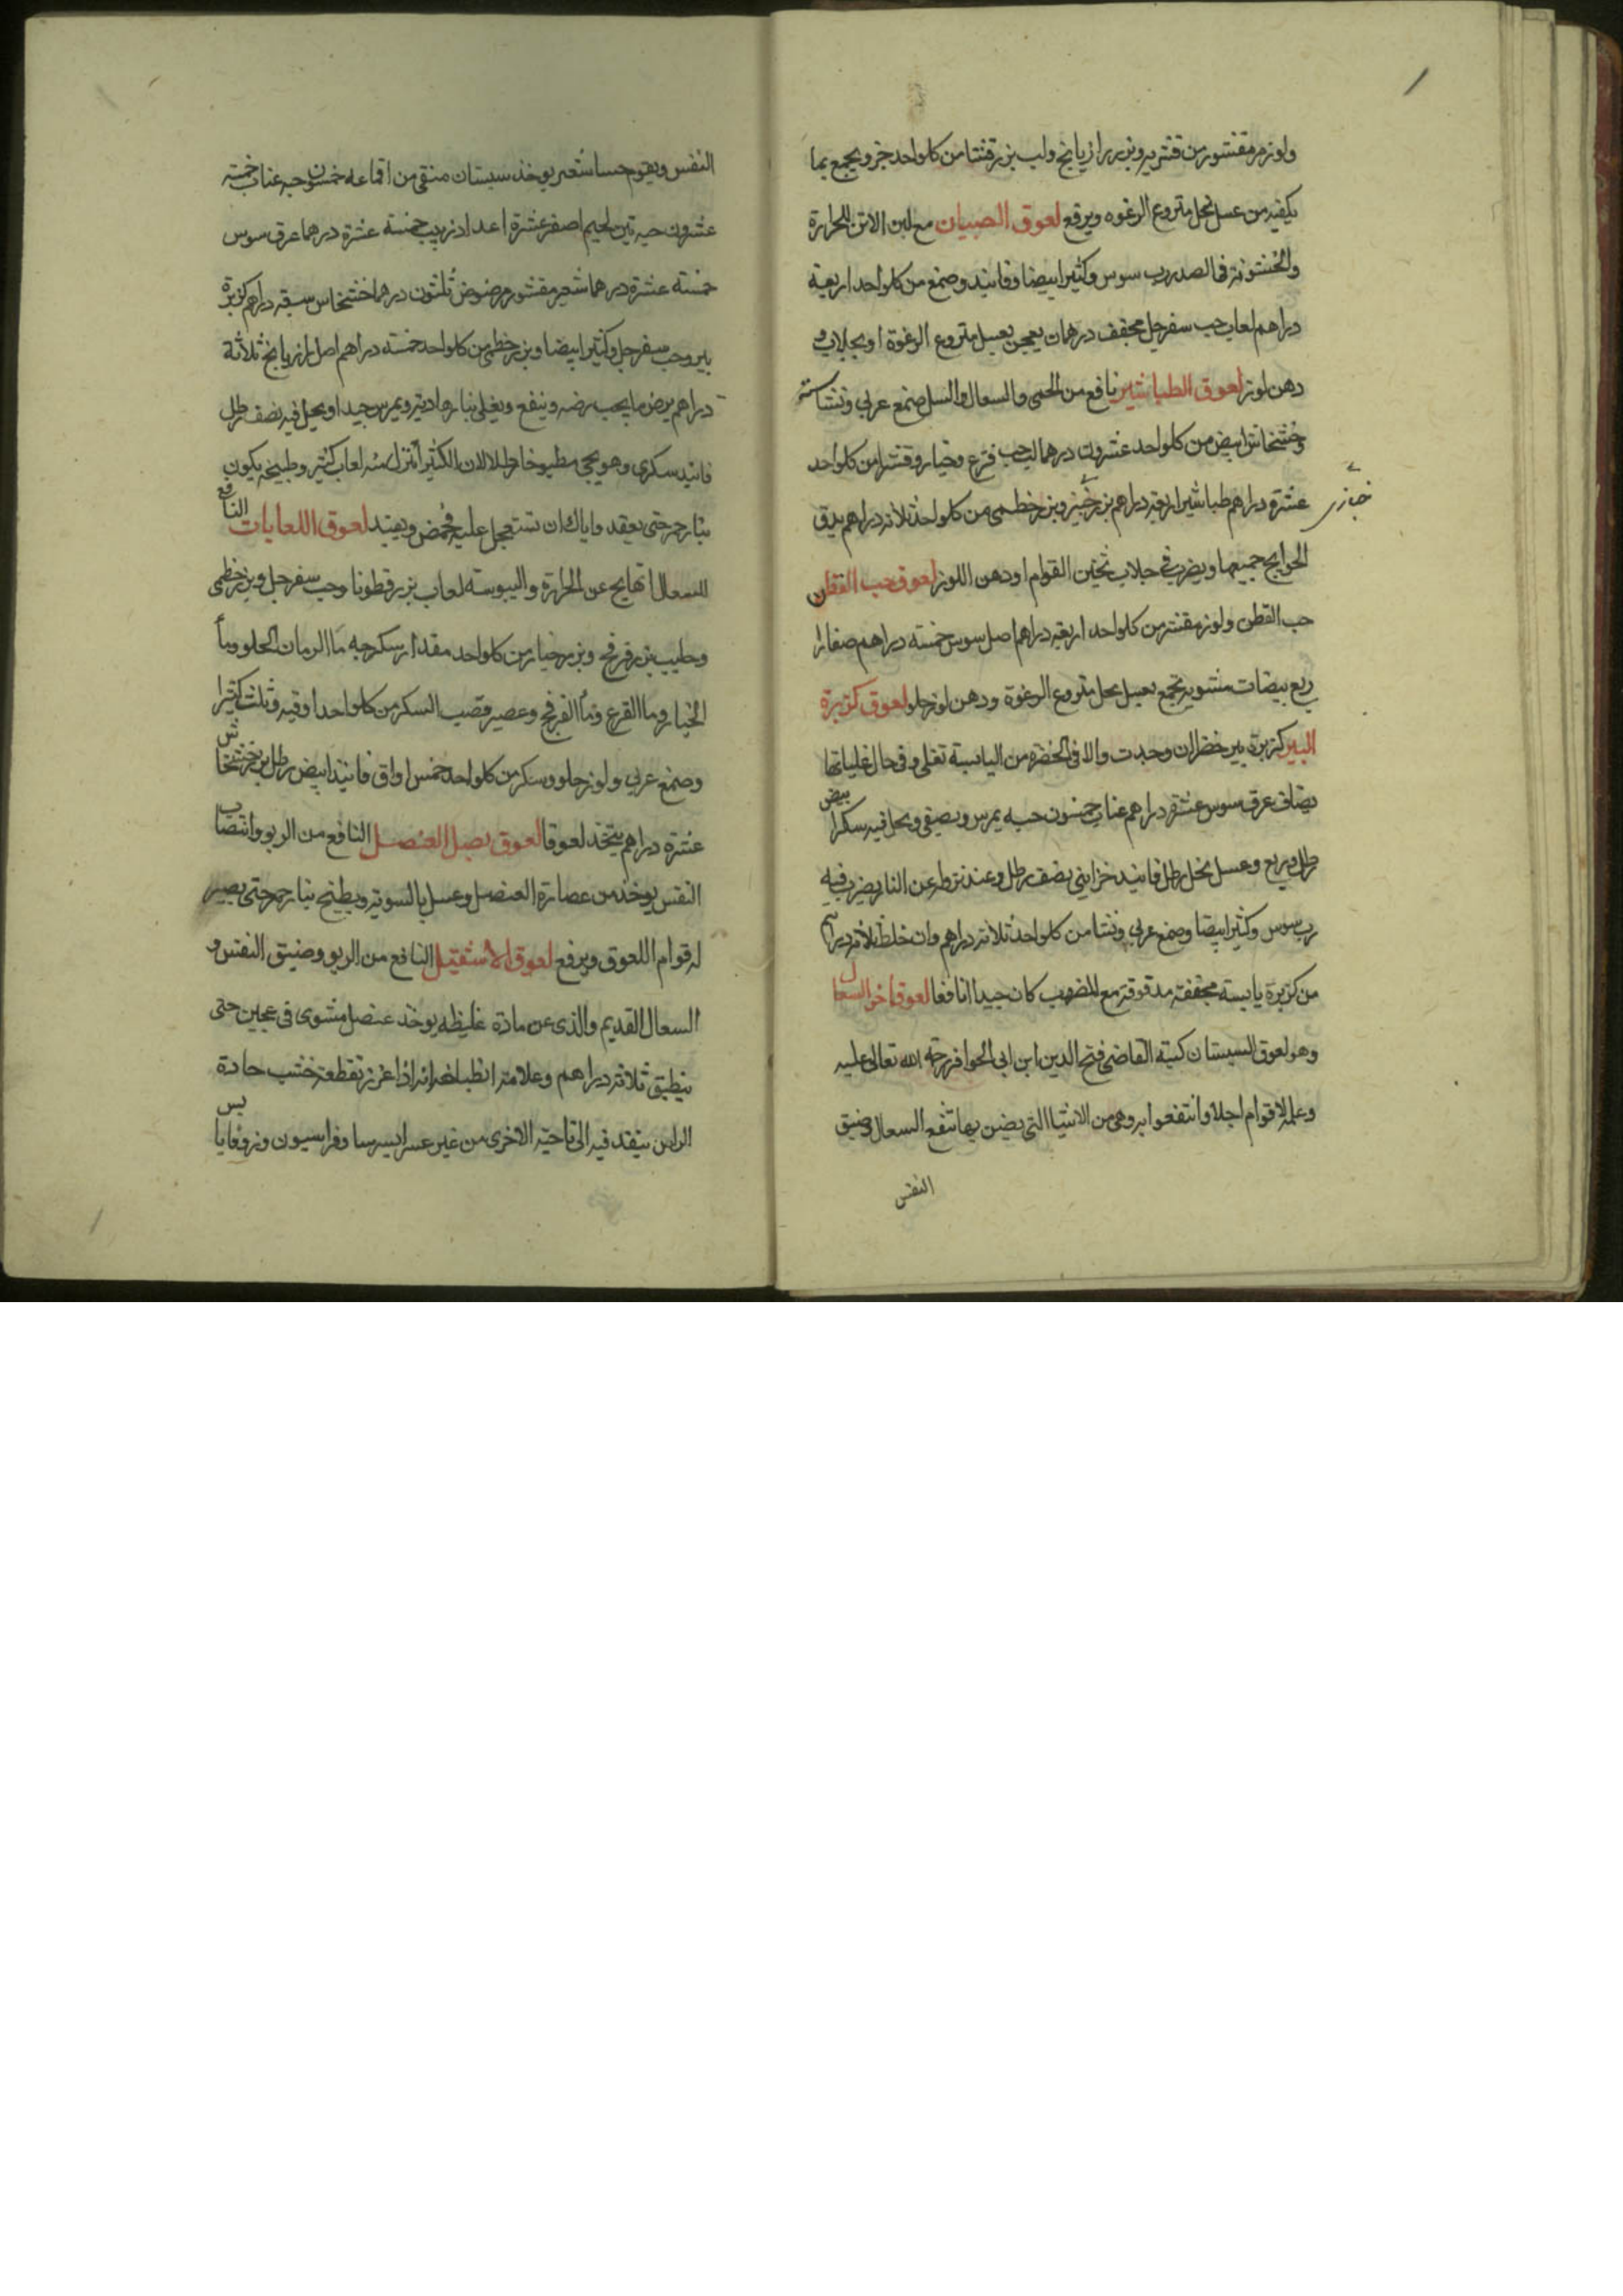 ولوز مر مقشور من قشريه وبزر رازيانج ولب بزر قثا من كل واحد جز ويجمع بما
يكفيه من عسل نحل منزوع الرغوه ويرفع لعوق الصبيان مع لبن الاتن للحرارة
والخشونة في الصدر رب سوس وكثيرا بيضا وفانيد وصمغ من كل واحد اربعة
دراهم لعاب حب سفرجل مجفف درهمان يعجن بعسل منزوع الرغوة او بجلاب و
دهن لوز لعوق الطباشير نافع من الحمى والسعال والسل صمغ عربي ونشاسته
وخشخاش ابيض من كل واحد عشرون درهما لب حب قرع وخيار وقثا من كل واحد
عشرة دراهم طباشير اربعة دراهم بزر خبيز وبزر خطمى من كل واحد ثلاثة دراهم يدق
خبازى
الحوايج جميعها ويضرب فى جلاب ثخين القوام او دهن اللوز لعوق حب القطن
حب القطن ولوز مقشر من كل واحد اربعة دراهم اصل سوس خمسة دراهم صفار
ربع بيضات مشويه تجمع بعسل نحل منزوع الرغوة ودهن لوز حلو لعوق كزبرة
البير كزبرة بير خضرا ان وجدت والا فى الخضره من اليابسة تغلى وفى حال غلياتها
يضاف عرق سوس عشرة دراهم عناب خمسون حبه يمرس ويصفى ويحل فيه سكر ابيض
رطل وربع وعسل نحل رطل فانيد خزاينى نصف رطل وعند نزوله عن النار يضرب فيه
رب سوس وكثيرا بيضا وصمغ عربي ونشا من كل واحد ثلاثة دراهم وان خلط ثلاثة دراهم
من كزبرة يابسة مجففة مدقوقة مع المضروب كان جيدا نافعا لعوق اخر السعال
وهو لعوق السبستان كتبه القاضى فتح الدين ابن ابى الحوافر رحمة الله تعالى عليه
وعمله لاقوام اجلا وانتفعوا به وهى من الاشيا التى يضن بها تنفع السعال وضيق
النفس
النفس ويقوم حسا شعير يوخذ سبستان منقى من اقماعه خمسون حبه عناب خمسة
عشرون حبه تين لحيم اصفر عشرة اعداد زبيب خمسة عشرة درهما عرق سوس
خمسة عشرة درهما شعير مقشور مرضوض ثلثون درهما خشخاش سبعة دراهم كزبرة
بير وحب سفرجل وكثيرا بيضا وبزر خطمى من كل واحد خمسة دراهم اصل رازيانج ثلاثة
دراهم يرض ما يجب رضه وينقع ويغلى بنار هادية ويمرس جيدا ويحل فيه نصف رطل
فانيد سكرى وهو يجى مطبوخا رطلا لان الكثيرا تنزل منه لعاب كثير وطبيخه يكون
بنار جمر حتى يعقد واياك ان تستعجل عليه فحمض ويفسد لعوق اللعابات النافع
للسعال الهايج عن الحرارة واليبوسة لعاب بزر قطونا وحب سفرجل وبزر خطمى
وحليب بزر فرفح وبزر خيار من كل واحد مقدار سكرجه ما الرمان الحلو وما
الخيار وما القرع وما الفرفح وعصير قصب السكر من كل واحد اوقيه وثلث كثيرا
وصمغ عربي ولوز حلو وسكر من كل واحد خمس اواق فانيد ابيض رطل بزر خشخاش
عشرة دراهم يتخذ لعوقا لعوق بصل العنصل النافع من الربو وانتصاب
النفس يوخذ من عصارة العنصل وعسل بالسوية ويطبخ بنار جمر حتى يصير
له قوام اللعوق ويرفع لعوق الاشقيل النافع من الربو وضيق النفس و
السعال القديم والذى عن مادة غليظه يوخذ عنصل مشوى فى عجين حتى
ينطبق ثلاثة دراهم وعلامة انطباخه انه اذا غرز بقطعة خشب حادة
الراس ينفد فيه الى ناحية الاخرى من غير عسر ايرسا وفراسيون وزوفا يابس